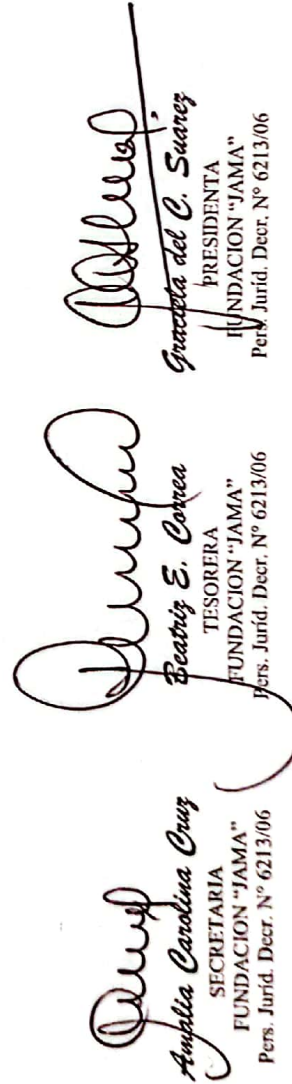 Amalia Carolina Cruz
SECRETARIA
FUNDACION "JAMA"
Pers. Juríd. Decr. N° 6213/06
Beatriz E. Correa
TESORERA
FUNDACION "JAMA"
Pers. Juríd. Decr. N° 6213/06
Graciela del C. Suarez
PRESIDENTA
FUNDACION "JAMA"
Pers. Juríd. Decr. N° 6213/06